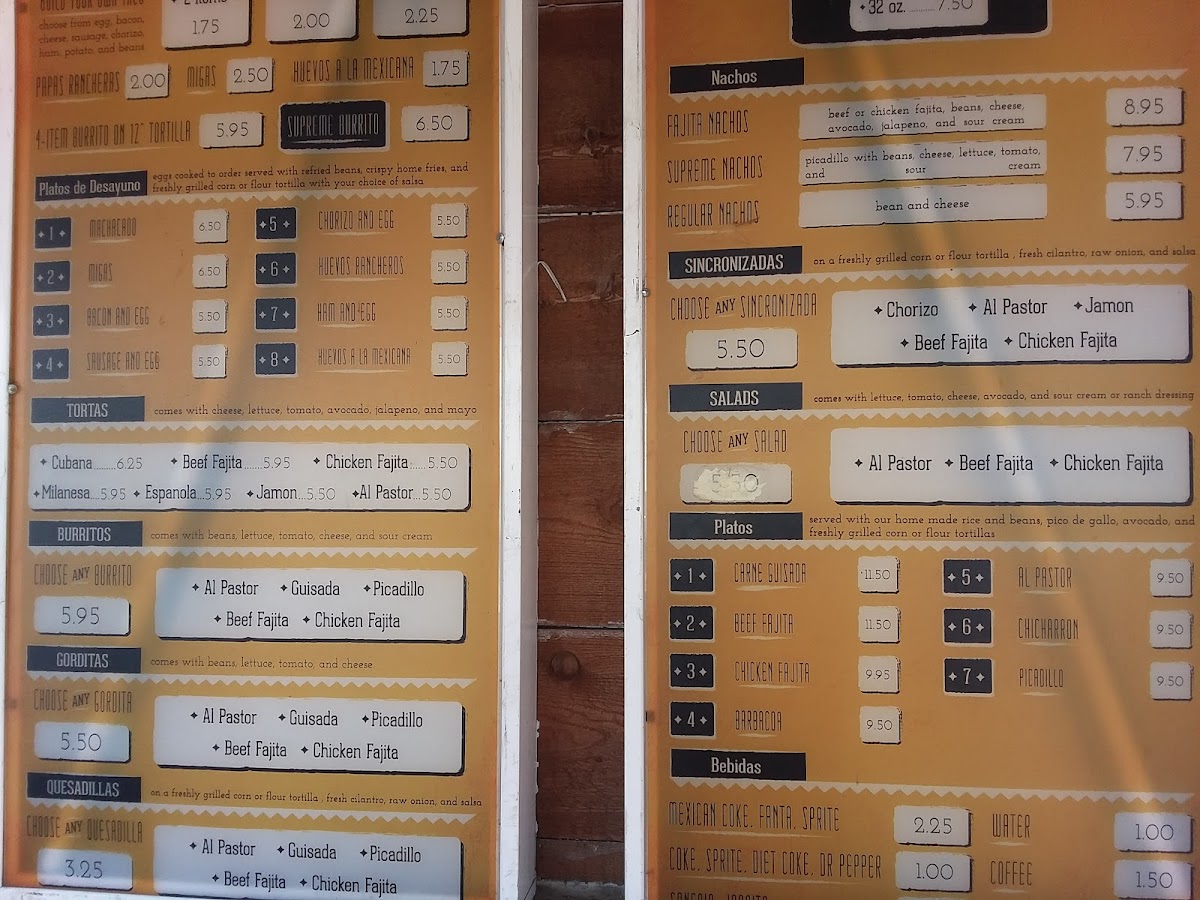 BUILD YOUR OWN TACO
choose from egg, bacon,
cheese, sausage, chorizo,
ham, potato, and beans
1.75
2.00
2.25
PAPAS RANCHERAS 2.00 MIGAS 2.50 HUEVOS A LA MEXICANA 1.75
4-ITEM BURRITO ON 12" TORTILLA 5.95 SUPREME BURRITO 6.50
Platos de Desayuno eggs cooked to order served with refried beans, crispy home fries, and
freshly grilled corn or flour tortilla with your choice of salsa
1 MACHACADO 6.50 5 CHORIZO AND EGG 5.50
2 MIGAS 6.50 6 HUEVOS RANCHEROS 5.50
3 BACON AND EGG 5.50 7 HAM AND EGG 5.50
4 SAUSAGE AND EGG 5.50 8 HUEVOS A LA MEXICANA 5.50
TORTAS comes with cheese, lettuce, tomato, avocado, jalapeno, and mayo
Cubana.........6.25 Beef Fajita.......5.95 Chicken Fajita......5.50
Milanesa....5.95 Espanola...5.95 Jamon....5.50 Al Pastor...5.50
BURRITOS comes with beans, lettuce, tomato, cheese, and sour cream
CHOOSE ANY BURRITO
5.95
Al Pastor Guisada Picadillo
Beef Fajita Chicken Fajita
GORDITAS comes with beans, lettuce, tomato, and cheese
CHOOSE ANY GORDITA
5.50
Al Pastor Guisada Picadillo
Beef Fajita Chicken Fajita
QUESADILLAS on a freshly grilled corn or flour tortilla , fresh cilantro, raw onion, and salsa
CHOOSE ANY QUESADILLA
3.25
Al Pastor Guisada Picadillo
Beef Fajita Chicken Fajita
32 oz. ..........7.50
Nachos
FAJITA NACHOS beef or chicken fajita, beans, cheese, 8.95
avocado, jalapeno, and sour cream
SUPREME NACHOS picadillo with beans, cheese, lettuce, tomato, 7.95
and sour cream
REGULAR NACHOS bean and cheese 5.95
SINCRONIZADAS on a freshly grilled corn or flour tortilla , fresh cilantro, raw onion, and salsa
CHOOSE ANY SINCRONIZADA
5.50
Chorizo Al Pastor Jamon
Beef Fajita Chicken Fajita
SALADS comes with lettuce, tomato, cheese, avocado, and sour cream or ranch dressing
CHOOSE ANY SALAD
5.50
Al Pastor Beef Fajita Chicken Fajita
Platos served with our home made rice and beans, pico de gallo, avocado, and
freshly grilled corn or flour tortillas
1 CARNE GUISADA 11.50 5 AL PASTOR 9.50
2 BEEF FAJITA 11.50 6 CHICHARRON 9.50
3 CHICKEN FAJITA 9.95 7 PICADILLO 9.50
4 BARBACOA 9.50
Bebidas
MEXICAN COKE, FANTA, SPRITE 2.25 WATER 1.00
COKE, SPRITE, DIET COKE, DR PEPPER 1.00 COFFEE 1.50